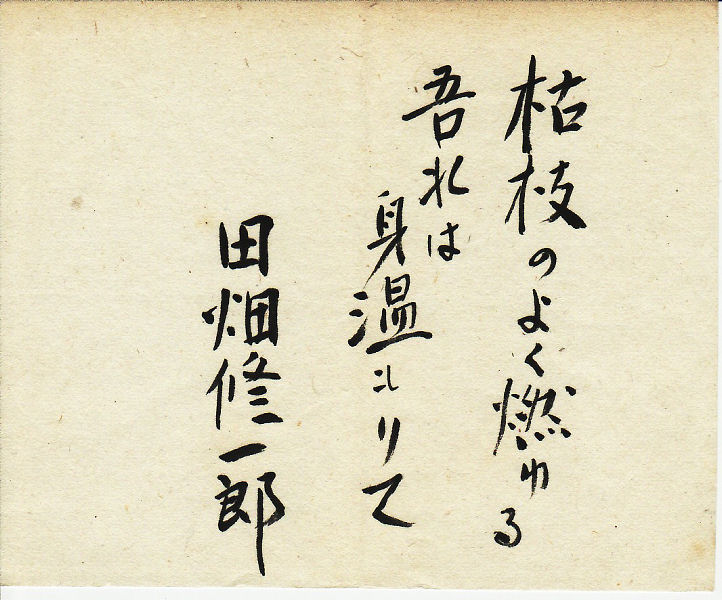 枯枝のよく燃ゆる
吾れは
身温もりて
田畑修一郎